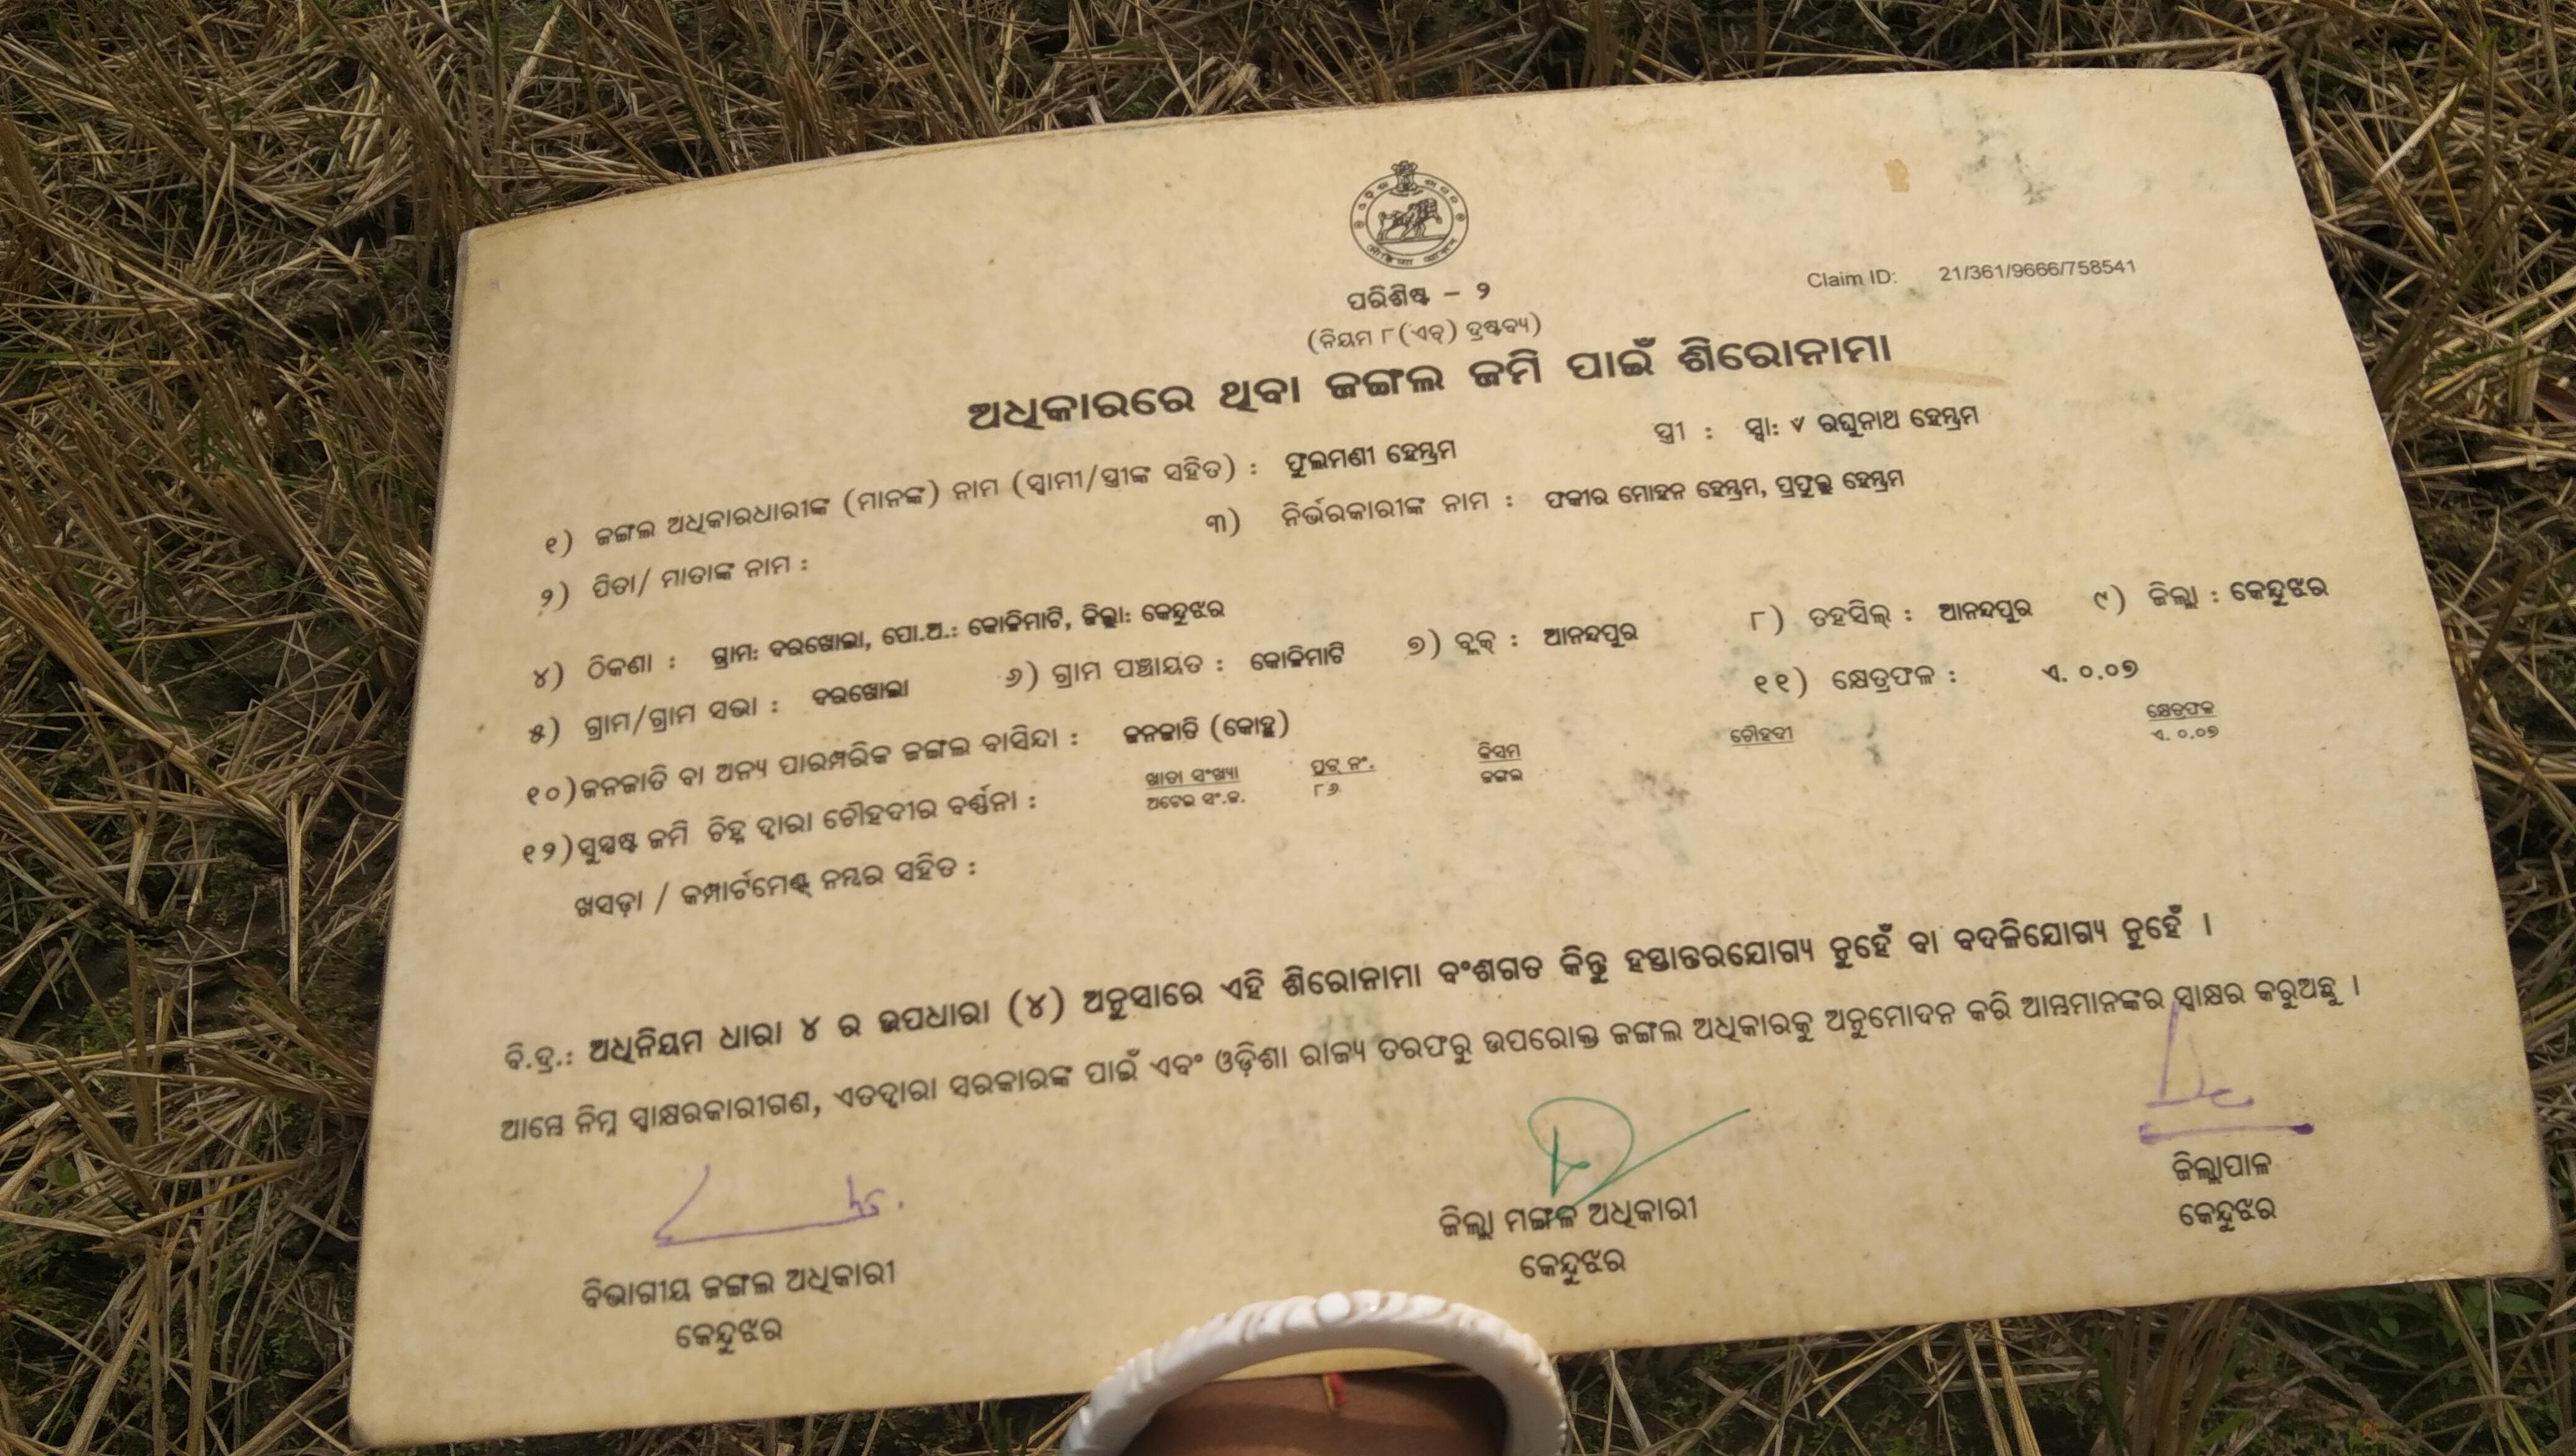 ପରିଶିଷ୍ଟ – ୨
Claim ID: 21/361/9666/758541
(ନିୟମ ୮(ଏଚ୍) ଦ୍ରଷ୍ଟବ୍ୟ)
ଅଧିକାରରେ ଥିବା ଜଙ୍ଗଲ ଜମି ପାଇଁ ଶିରୋନାମା
୧) ଜଙ୍ଗଲ ଅଧିକାରଧାରୀଙ୍କ (ମାନଙ୍କ) ନାମ (ସ୍ୱାମୀ/ସ୍ତ୍ରୀଙ୍କ ସହିତ) : ଫୁଲମଣୀ ହେମ୍ବ୍ରମ ସ୍ତ୍ରୀ : ସ୍ୱା: ୰ ରଘୁନାଥ ହେମ୍ବ୍ରମ
୨) ପିତା/ ମାତାଙ୍କ ନାମ : ୩) ନିର୍ଭରକାରୀଙ୍କ ନାମ : ଫକୀର ମୋହନ ହେମ୍ବ୍ରମ, ପ୍ରଫୁଲ୍ଲ ହେମ୍ବ୍ରମ
୪) ଠିକଣା : ଗ୍ରାମ: ବରଖୋଲା, ପୋ.ଅ.: କୋଳିମାଟି, ଜିଲ୍ଲା: କେନ୍ଦୁଝର
୫) ଗ୍ରାମ/ଗ୍ରାମ ସଭା : ବରଖୋଲା ୬) ଗ୍ରାମ ପଞ୍ଚାୟତ : କୋଳିମାଟି ୭) ବ୍ଲକ୍ : ଆନନ୍ଦପୁର ୮) ତହସିଲ୍ : ଆନନ୍ଦପୁର ୯) ଜିଲ୍ଲା : କେନ୍ଦୁଝର
୧୦) ଜନଜାତି ବା ଅନ୍ୟ ପାରମ୍ପରିକ ଜଙ୍ଗଲ ବାସିନ୍ଦା : ଜନଜାତି (କୋହ୍ଲ) ୧୧) କ୍ଷେତ୍ରଫଳ : ଏ. ୦.୦୭
୧୨) ସୁସ୍ପଷ୍ଟ ଜମି ଚିହ୍ନ ଦ୍ୱାରା ଚୌହଦୀର ବର୍ଣ୍ଣନା : ଖାତା ସଂଖ୍ୟା ପ୍ଲଟ୍ ନଂ. କିସମ ଚୌହଦୀ କ୍ଷେତ୍ରଫଳ
ଅଟେଇ ସଂ.ଜ. ୮୬ ଜଙ୍ଗଲ ଏ. ୦.୦୭
ଖସଡ଼ା / କମ୍ପାର୍ଟମେଣ୍ଟ୍ ନମ୍ବର ସହିତ :
ବି.ଦ୍ର.: ଅଧିନିୟମ ଧାରା ୪ ର ଉପଧାରା (୪) ଅନୁସାରେ ଏହି ଶିରୋନାମା ବଂଶଗତ କିନ୍ତୁ ହସ୍ତାନ୍ତରଯୋଗ୍ୟ ନୁହେଁ ବା ବଦଳିଯୋଗ୍ୟ ନୁହେଁ ।
ଆମ୍ଭେ ନିମ୍ନ ସ୍ୱାକ୍ଷରକାରୀଗଣ, ଏତଦ୍ୱାରା ସରକାରଙ୍କ ପାଇଁ ଏବଂ ଓଡ଼ିଶା ରାଜ୍ୟ ତରଫରୁ ଉପରୋକ୍ତ ଜଙ୍ଗଲ ଅଧିକାରକୁ ଅନୁମୋଦନ କରି ଆମ୍ଭମାନଙ୍କର ସ୍ୱାକ୍ଷର କରୁଅଛୁ ।
ବିଭାଗୀୟ ଜଙ୍ଗଲ ଅଧିକାରୀ ଜିଲ୍ଲା ମଙ୍ଗଳ ଅଧିକାରୀ ଜିଲ୍ଲାପାଳ
କେନ୍ଦୁଝର କେନ୍ଦୁଝର କେନ୍ଦୁଝର